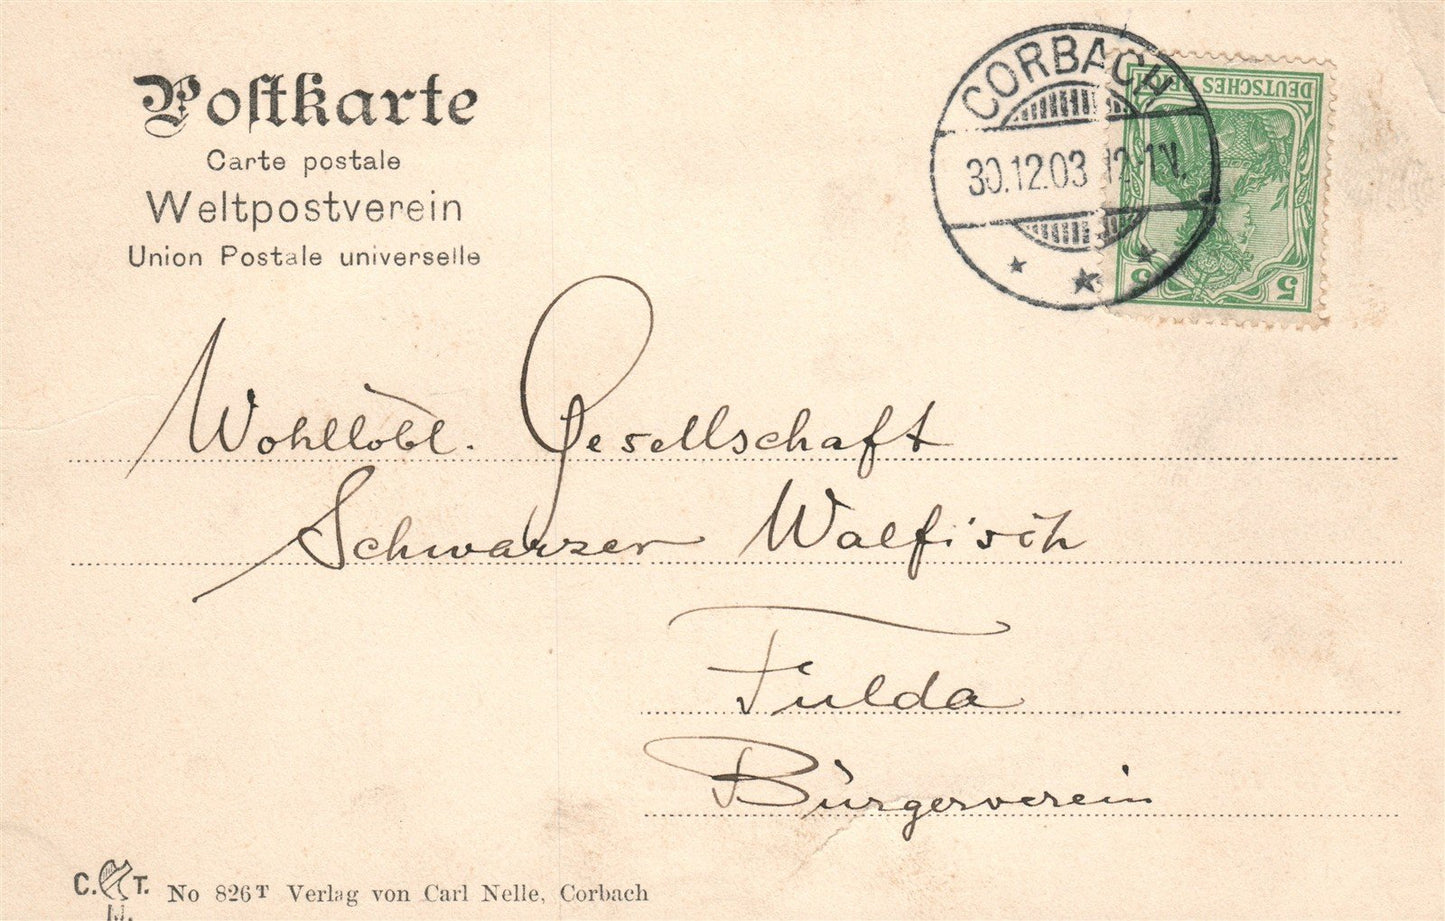 Postkarte
Carte postale
Weltpostverein
Union Postale universelle
CORBACH
30.12.03 12-1N.
DEUTSCHES REICH
5 5
Wohllöbl. Gesellschaft
Schwarzer Walfisch
Fulda
Bürgerverein
C. T.
M.
No 826T Verlag von Carl Nelle, Corbach